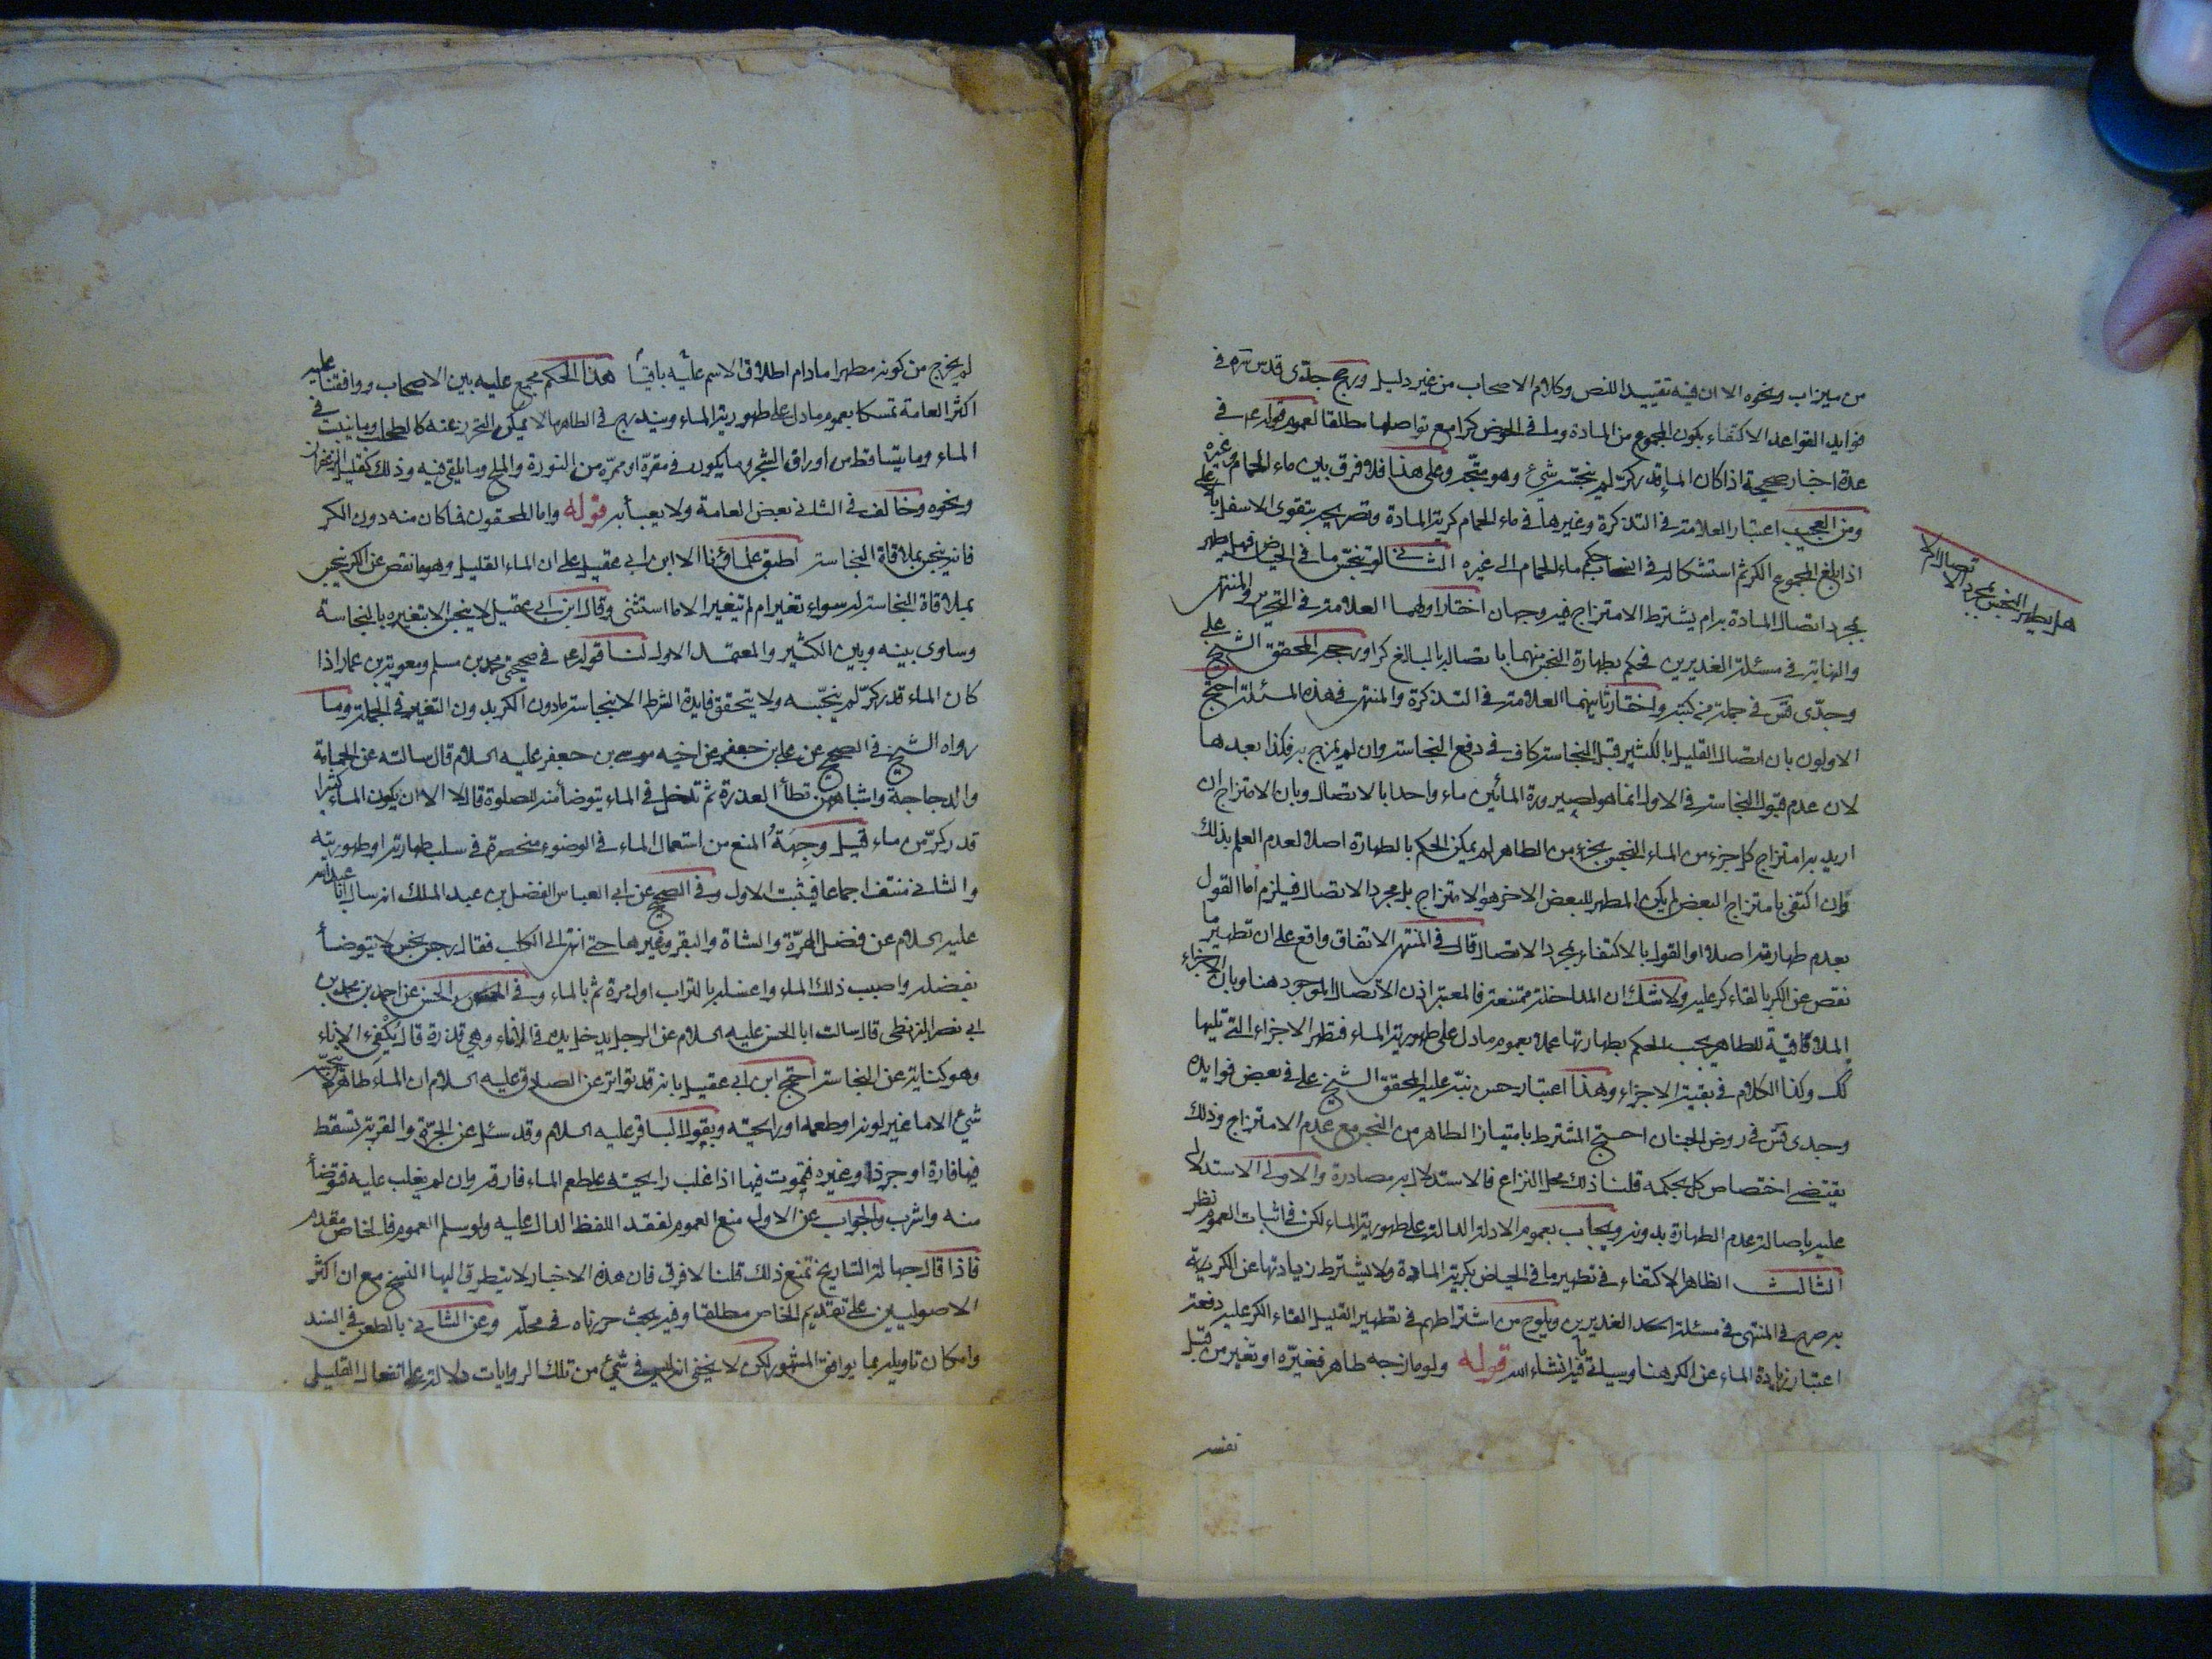 من ميزاب ونحوه الا ان فيه تقييد اللنص وكلام الاصحاب من غير دليل ورجح جدّى قدس سره في
فوايد القواعد الاكتفاء بكون المجموع من المادة وما في الحوض كرا مع تواصلهما مطلقا لعموم قوله ع في
عدة اخبار صحيحة اذا كان الماء قدر كرّ لم ينجّسه شئ وهو متّجه وعلى هذا فلا فرق بين ماء الحمام وغيره
ومن العجيب اعتبار العلامة في التذكرة وغيرها في ماء الحمام كرية المادة وتصريحه بتقوى الاسفل بالاعلى
اذا بلغ المجموع الكر ثم استشكاله في انسحاب حكم ماء الحمام الى غيره الثاني لو تنجّس ما في الحياض فهل يطهر
بمجرد اتصال المادة به ام يشترط الامتزاج فيه وجهان اختار اولهما العلامة في التحرير والمنتهى
والنهاية في مسئلة الغديرين فحكم بطهارة النجس منهما باتصاله بالبالغ كرا ورجحه المحقق الشيخ علي
وجدّى قس في جملة من كتبه واختار ثانيهما العلامة في التذكرة والمنتهى في هذه المسئلة احتج
الاولون بان اتصال القليل بالكثير قبل النجاسة كاف في دفع النجاسة وان لم يمزج به فكذا بعدها
لان عدم قبول النجاسة في الاول انما هو لصيرورة المائين ماء واحدا بالاتصال وبان الامتزاج ان
اريد به امتزاج كل جزء من الماء النجس بجزء من الطاهر لم يمكن الحكم بالطهارة اصلا لعدم العلم بذلك
وان اكتفى بامتزاج البعض لم يكن المطهر للبعض الاخر هو الامتزاج بل مجرد الاتصال فيلزم اما القول
بعدم طهارته اصلا او القول بالاكتفاء بمجرد الاتصال قال في المنتهى الاتفاق واقع على ان تطهير ما
نقص عن الكر بالقاء كر عليه ولا شك ان المداخلة ممتنعة فالمعتبر اذن الاتصال الموجود هنا وبان الاجزاء
الملاقية للطاهر يجب الحكم بطهارتها عملا بعموم ما دل على طهورية الماء فتطهر الاجزاء التي تليها
كك وكذا الكلام في بقية الاجزاء وهذا اعتبار حسن نبّه عليه المحقق الشيخ علي في بعض فوايده
وجدى قس في روض الجنان احتج المشترط بامتياز الطاهر من النجس مع عدم الامتزاج وذلك
يقتضى اختصاص كل بحكمه قلنا ذلك محل النزاع فالاستدلال به مصادرة والاولى الاستدلال
عليه باصالة عدم الطهارة بدونه ويجاب بعموم الادلة الدالة على طهورية الماء لكن في اثبات العموم نظر
الثالث الظاهر الاكتفاء في تطهير ما في الحياض بكرية المادة ولا يشترط زيادتها عن الكرية
به صرح في المنتهى في مسئلة احد الغديرين ويلوح من اشتراطهم في تطهير القليل القاء الكر عليه دفعة
اعتبار زيادة الماء عن الكر هنا وسياتي فيه انشاء الله قوله ولو مازجه طاهر فغيّره او تغير من قبل
نفسه
هل يطهر النجس بمجرد الاتصال ام لا
لم يخرج من كونه مطهرا ما دام اطلاق الاسم عليه باقيًا هذا الحكم مجمع عليه بين الاصحاب ووافقنا عليه
اكثر العامة تمسكا بعموم ما دل على طهورية الماء ويندرج في الطاهر ما لا يمكن التحرز عنه كالطحلب وما ينبت في
الماء وما يتساقط من اوراق الشجر وما يكون في مقرّه او ممرّه من النورة والملح وما يلقى فيه وذلك كقليل الزعفران
ونحوه وخالف في الثاني بعض العامة ولا يعبأ به قوله واما المحقون فما كان منه دون الكر
فانه ينجس بملاقاة النجاسة اطبق علماؤنا الا ابن ابي عقيل على ان الماء القليل وهو ما نقص عن الكر ينجس
بملاقاة النجاسة له سواء تغير ام لم يتغير الا ما استثنى وقال ابن ابي عقيل لا ينجس الا بتغيره بالنجاسة
وساوى بينه وبين الكثير والمعتمد الاول لنا قوله ع في صحيحتى محمد بن مسلم ومعوية بن عمار اذا
كان الماء قدر كرّ لم ينجّسه ولا يتحقق فايدة الشرط الا بنجاسة ما دون الكر بدون التغير في الجملة وما
رواه الشيخ في الصحيح عن علي بن جعفر عن اخيه موسى بن جعفر عليه السلام قال سالته عن الحمامة
والدجاجة واشباههن تطأ العذرة ثم تدخل في الماء يتوضأ منه للصلوة قال لا الا ان يكون الماء كثيرا
قدر كرّ من ماء قيل وجهَةُ المنع من استعمال الماء في الوضوء منحصرة في سلب طهارته او طهوريته
والثاني منتف اجماعا فيثبت الاول وفي الصحيح عن ابي العباس الفضل بن عبد الملك انه سال ابا عبد الله
عليه السلام عن فضل الهرّة والشاة والبقر وغيرها حتى انتهى الى الكلب فقال رجس نجس لا يتوضأ
بفضله واصبب ذلك الماء واغسله بالتراب اول مرة ثم بالماء وفي الحسن عن احمد بن محمد بن
ابي نصر البزنطى قال سالت ابا الحسن عليه السلام عن الرجل يدخل يده في الاناء وهي قذرة قال يُكفِئ الاناء
وهو كناية عن النجاسة احتج ابن ابي عقيل بانه قد تواتر عن الصادق عليه السلام ان الماء طاهر لا ينجّسه
شئ الا ما غير لونه او طعمه او رايحته وبقول الباقر عليه السلام وقد سئل عن الجرّة والقربة تسقط
فيها فارة او جرذ او غيره فتموت فيها اذا غلب رايحته على طعم الماء فارقه وان لم يغلب عليه فتوضأ
منه واشرب والجواب عن الاول منع العموم لفقد اللفظ الدال عليه ولو سلم العموم فالخاص مقدم
فاذا قال جهالة التاريخ تمنع ذلك قلنا لا فرق فان هذه الاخبار لا يتطرق اليها النسخ مع ان اكثر
الاصوليين على تقديم الخاص مطلقا وفيه بحث حررناه في محلّه وعن الثاني بالطعن في السند
وامكان تاويله بما يوافق المشهور لكن لا يخفى انه ليس في شئ من تلك الروايات دلالة على انفعال القليل